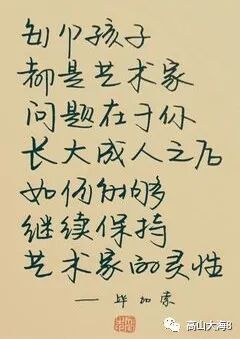 每个孩子
都是艺术家
问题在于你
长大成人之后
如何能够
继续保持
艺术家的灵性
—毕加索
高山大海8